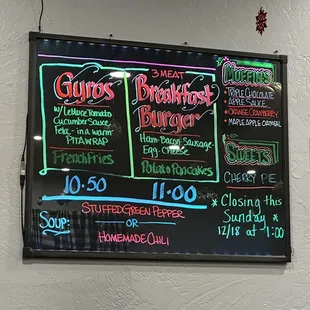 Gyros
w/Lettuce Tomato
Cucumber Sauce
Feta - in a warm
PITA WRAP
French Fries
10.50
3 MEAT
Breakfast
Burger
Ham-Bacon-Sausage
Egg-Cheese
Potato Pancakes
11.00
MUFFINS
• TRIPLE CHOCOLATE
• APPLE SAUCE
• ORANGE CRANBERRY
• MAPLE APPLE OATMEAL
SWEETS
CHERRY PIE
SOUP:
STUFFED GREEN PEPPER
OR
HOMEMADE CHILI
* Closing this
Sunday *
12/18 at 1:00